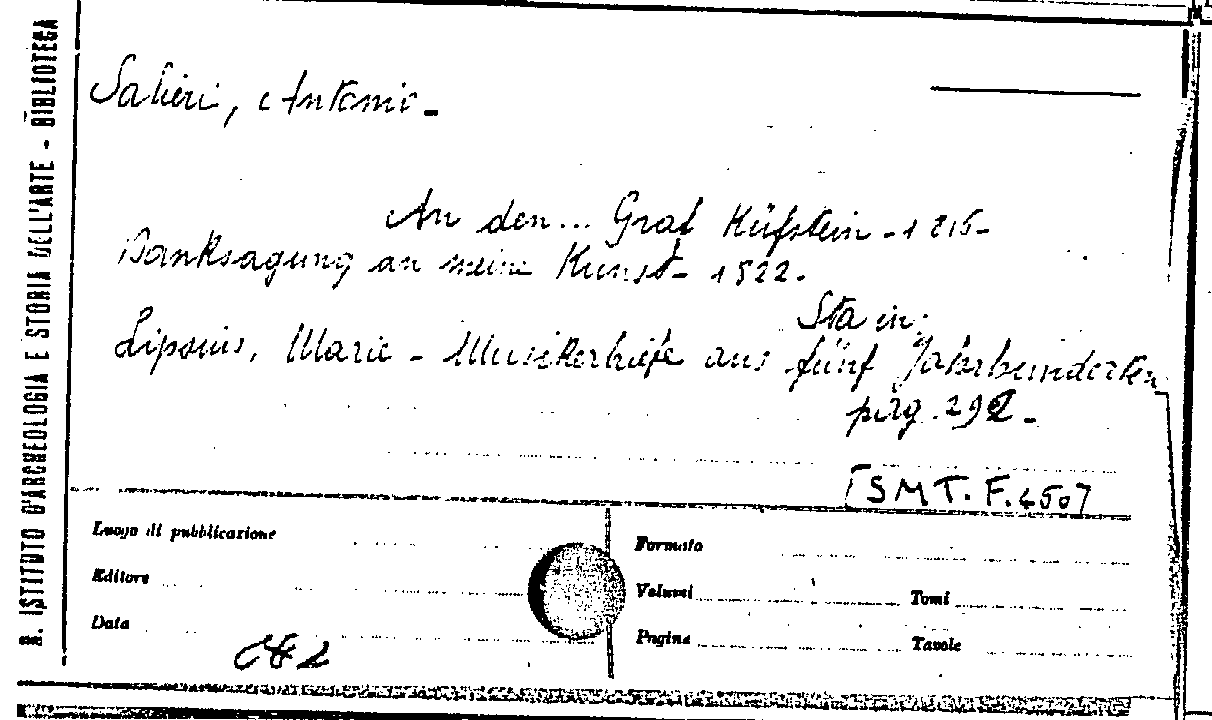 R. ISTITUTO D'ARCHEOLOGIA E STORIA DELL'ARTE - BIBLIOTECA
Salieri, Antonio -
An den... Graf Küfstein - 1815 -
Danksagung an meine Kunst - 1822.
Sta in:
Lipsius, Marie - Musikerbriefe aus fünf Jahrhunderten
pag. 292 -
[SMT. F. 450]
Luogo di pubblicazione
Formato
Editore
Volumi
Tomi
Data
Pagine
Tavole